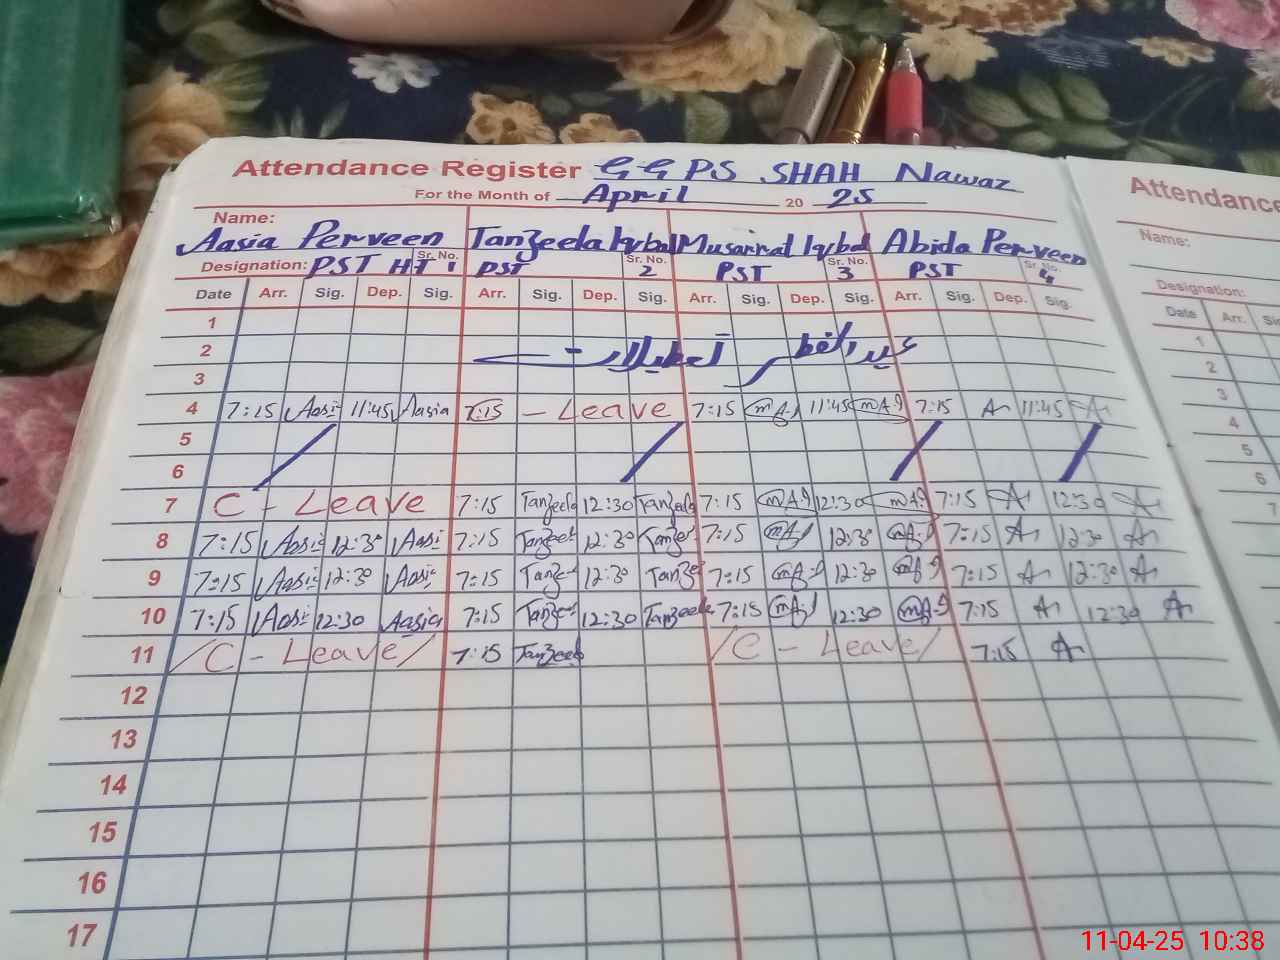 Attendance Register GGPS SHAH Nawaz
For the Month of April 20 25
Name:
Aasia Perveen Tanzeela Iqbal Musarrat Iqbal Abida Perveen
Designation: PST HT Sr. No. 1 PST Sr. No. 2 PST Sr. No. 3 PST Sr. No. 4
Date Arr. Sig. Dep. Sig. Arr. Sig. Dep. Sig. Arr. Sig. Dep. Sig. Arr. Sig. Dep. Sig.
1
2 عید الفطر تعطیلات
3
4 7:15 Aasi 11:45 Aasia 7:15 - Leave 7:15 mA.J 11:45 mA.J 7:15 A 11:45 A
5
6
7 C - Leave 7:15 Tanzeela 12:30 Tanzeela 7:15 mA.J 12:30 mA.J 7:15 A 12:30 A
8 7:15 Aasi 12:30 Aasi 7:15 Tanzeel 12:30 Tanzee 7:15 mA.J 12:30 mA.J 7:15 A 12:30 A
9 7:15 Aasi 12:30 Aasi 7:15 Tanze 12:30 Tanze 7:15 mA.J 12:30 mA.J 7:15 A 12:30 A
10 7:15 Aasi 12:30 Aasia 7:15 Tanzeel 12:30 Tanzeela 7:15 mA.J 12:30 mA.J 7:15 A 12:30 A
11 C - Leave 7:15 Tanzeela C - Leave 7:15 A
12
13
14
15
16
17
Attendance
Name:
Designation:
Date Arr.
1
2
3
4
5
6
7
11-04-25 10:38